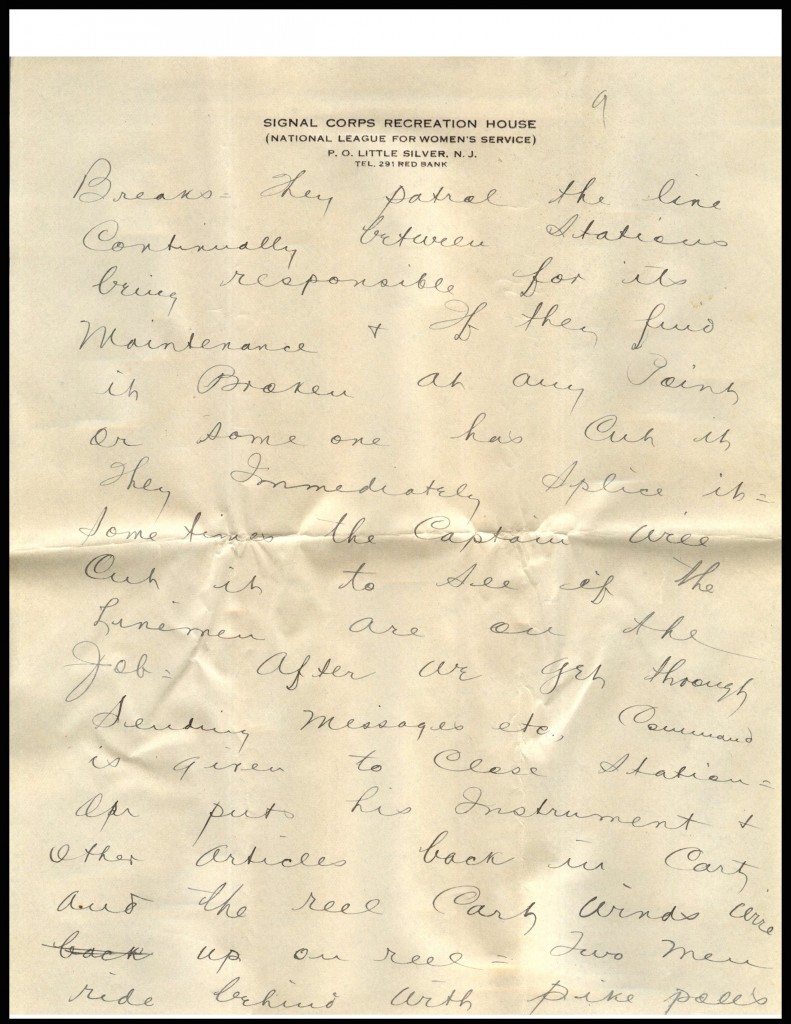 9
SIGNAL CORPS RECREATION HOUSE
(NATIONAL LEAGUE FOR WOMEN'S SERVICE)
P. O. LITTLE SILVER, N. J.
TEL. 291 RED BANK
Breaks = They patrol the line
Continually between Stations
being responsible for its
Maintenance + If they find
it Broken at any Point
or some one has Cut it
They Immediately Splice it =
Sometimes the Captain will
Cut it to see if the
Linemen are on the
Job = After we get through
Sending Messages etc., Command
is given to Close Station =
Opr puts his Instrument +
other articles back in Cart
and the reel Cart winds wire
back up on reel = Two Men
ride behind with pike poles